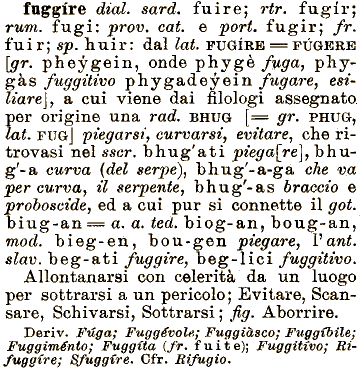 fuggire dial. sard. fuire; rtr. fugir;
rum. fugi: prov. cat. e port. fugir; fr.
fuir; sp. huir: dal lat. FUGÍRE = FÚGERE
[gr. pheýgein, onde phygè fuga, phy-
gàs fuggitivo phygadeýein fugare, esi-
liare], a cui viene dai filologi assegnato
per origine una rad. BHUG [= gr. PHUG,
lat. FUG] piegarsi, curvarsi, evitare, che ri-
trovasi nel sscr. bhug'ati piega[re], bhu-
g'-a curva (del serpe), bhug'-a-ga che va
per curva, il serpente, bhug'-as braccio e
proboscide, ed a cui pur si connette il got.
biug-an = a. a. ted. biog-an, boug-an,
mod. bieg-en, bou-gen piegare, l'ant.
slav. beg-ati fuggire, beg-lici fuggitivo.
Allontanarsi con celerità da un luogo
per sottrarsi a un pericolo; Evitare, Scan-
sare, Schivarsi, Sottrarsi; fig. Aborrire.
Deriv. Fúga; Fuggévole; Fuggiàsco; Fuggíbile;
Fuggiménto; Fuggíta (fr. fuite); Fuggitívo; Ri-
fuggíre; Sfuggíre. Cfr. Rifugio.